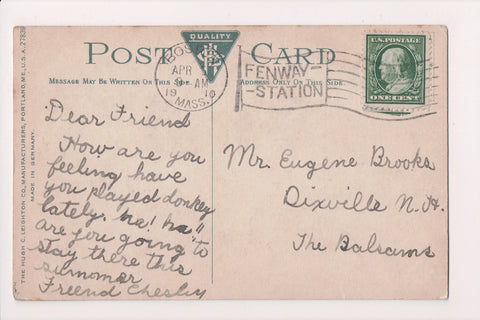 POST CARD
QUALITY
MESSAGE MAY BE WRITTEN ON THIS SIDE.
ADDRESS ONLY ON THIS SIDE.
BOSTON
APR
AM
19 10
MASS.
FENWAY-
-STATION
U.S. POSTAGE
ONE CENT
THE HUGH C. LEIGHTON CO., MANUFACTURERS, PORTLAND, ME., U.S.A.
MADE IN GERMANY.
Dear Friend
How are you
feeling have
you played donkey
lately. ha! ha!!
are you going to
stay there this
surnomar
Freend Chesley
Mr. Eugene Brooks
Dixville N. H.
The Balsams